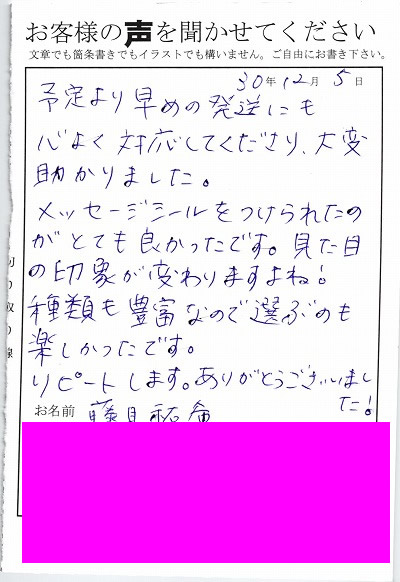 お客様の声を聞かせてください
文章でも箇条書きでもイラストでも構いません。ご自由にお書き下さい。
30年12月5日
予定より早めの発送にも
心よく対応してくださり、大変
助かりました。
メッセージシールをつけられたの
がとても良かったです。見た目
の印象が変わりますよね!
種類も豊富なので選ぶのも
楽しかったです。
リピートします。ありがとうございまし
た!
お名前 藤見
切り取り線